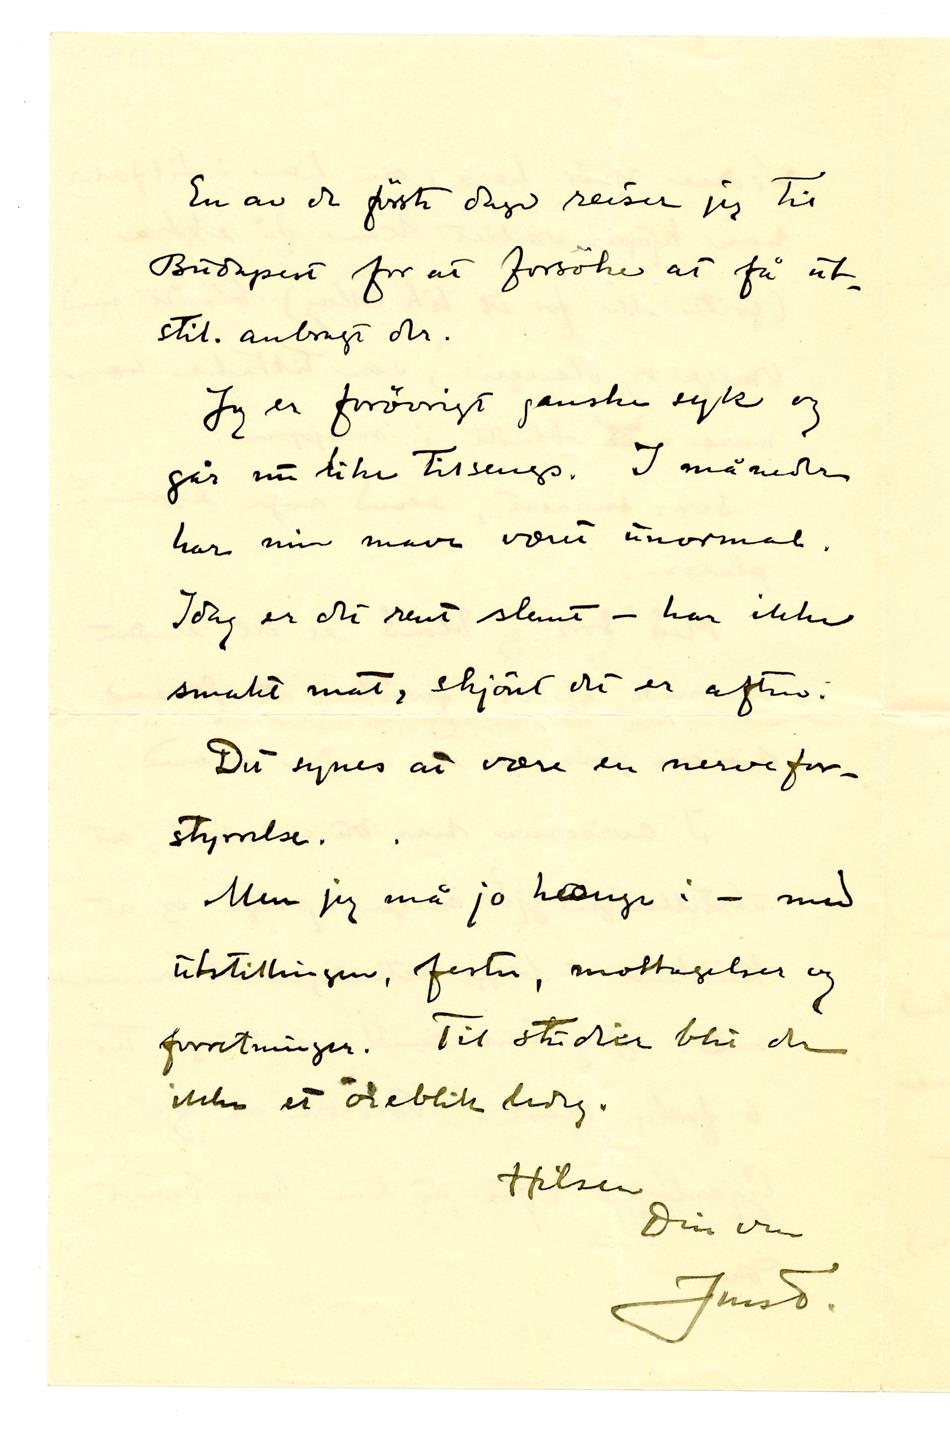 En av de förste dage reiser jeg til
Budapest for at forsöke at få ut-
stil. anbragt der.
Jeg er forövrigt ganske syk og
går nu like tilsengs. I måneder
har min mave været unormal.
Idag er det rent slemt – har ikke
smakt mat, skjönt det er aften.
Det synes at være en nervefor-
styrrelse.
Men jeg må jo hænge i – med
utstillingen, fester, mottagelser og
forretninger. Til studier blir der
ikke et öieblik ledig.
Hilsen
Din ven